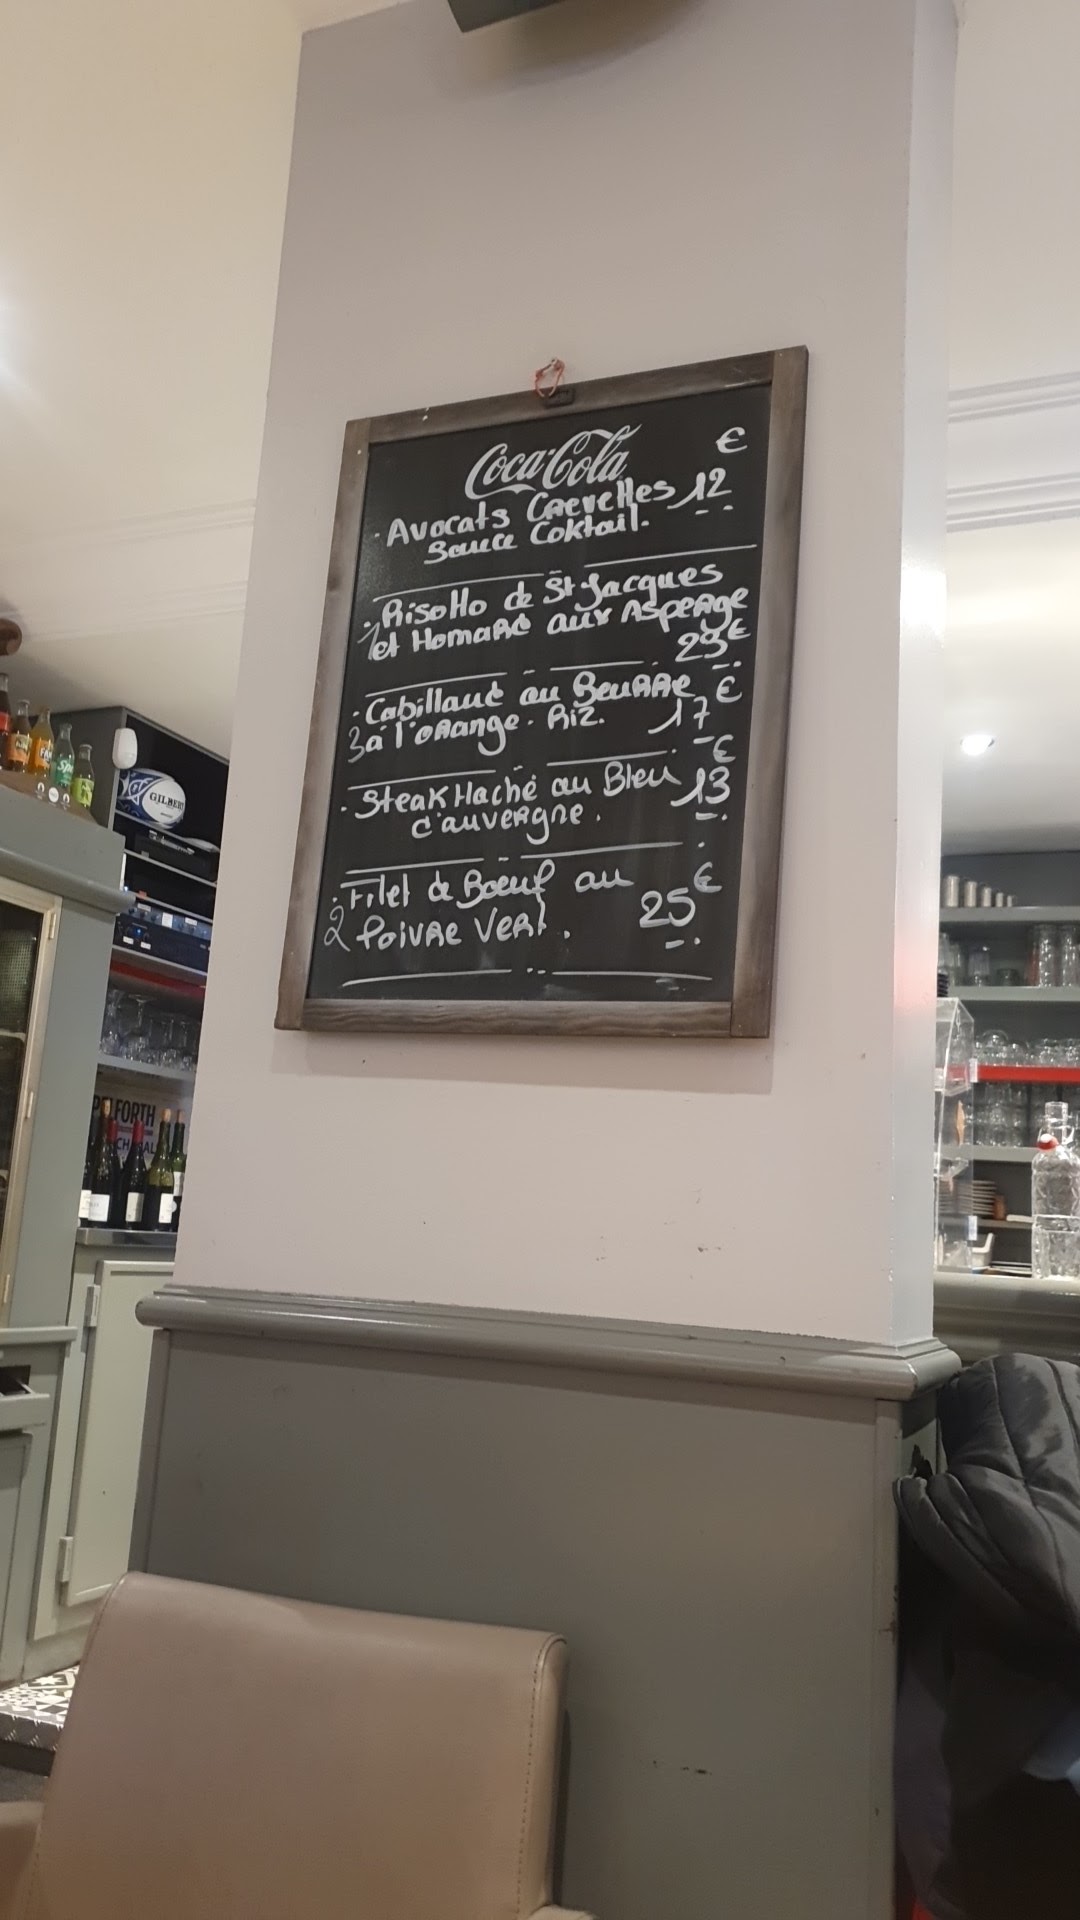 Coca-Cola €
. Avocats Crevettes 12
Sauce Coktail.
. Risotto de St Jacques
1 et Homard aux Asperge
29€
. Cabillaud au Beurre €
3 à l'orange. Riz. 17
€
. Steak Haché au Bleu 13
d'auvergne.
. Filet de Boeuf au €
2 Poivre Vert. 25
GILBERT
PELFORTH